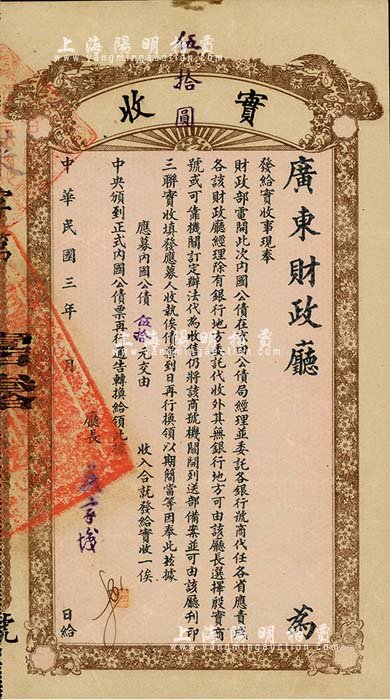 上海陽明拍賣
www.yangmingauction.com
伍拾圓
實收
廣東財政廳
為
發給實收事現奉
財政部電開此次內國公債在內國公債局經理並委託各銀行號商代任各省應責成
各該財政廳經理除有銀行地方委託代收外其無銀行地方可由該廳長選擇殷實商
號或可靠機關訂定辦法代為收儲仍將該商號機關開列送部備案並可由該廳刊印
三聯實收填發應募人收執俟債票到日再行換領以期簡當等因奉此茲據
應募內國公債伍拾元交由 收入合就發給實收一俟
中央頒到正式內國公債票再行通告轉換給領此據
廳長
中華民國三年 月
日給
字第
號
上海陽明拍賣
www.yangmingauction.com